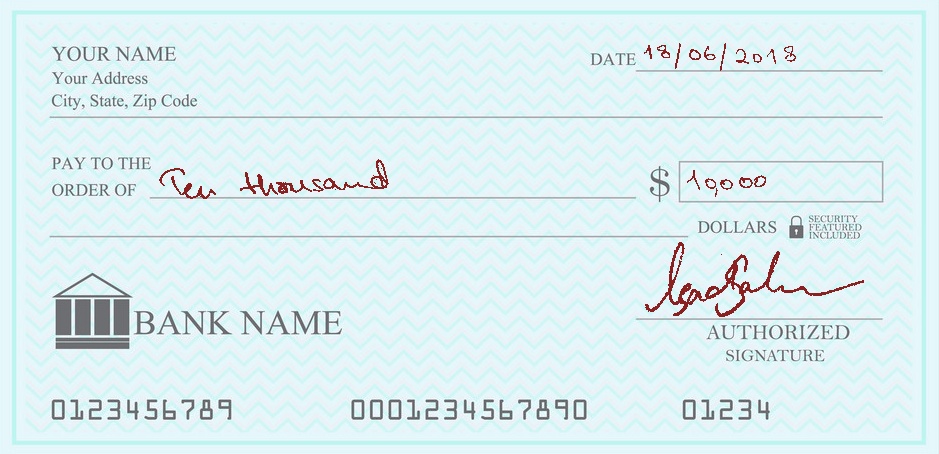 YOUR NAME
DATE 18/06/2018
Your Address
City, State, Zip Code
PAY TO THE
ORDER OF Ten thousand $ 10,000
DOLLARS SECURITY FEATURED INCLUDED
BANK NAME
AUTHORIZED
SIGNATURE
0123456789 0001234567890 01234